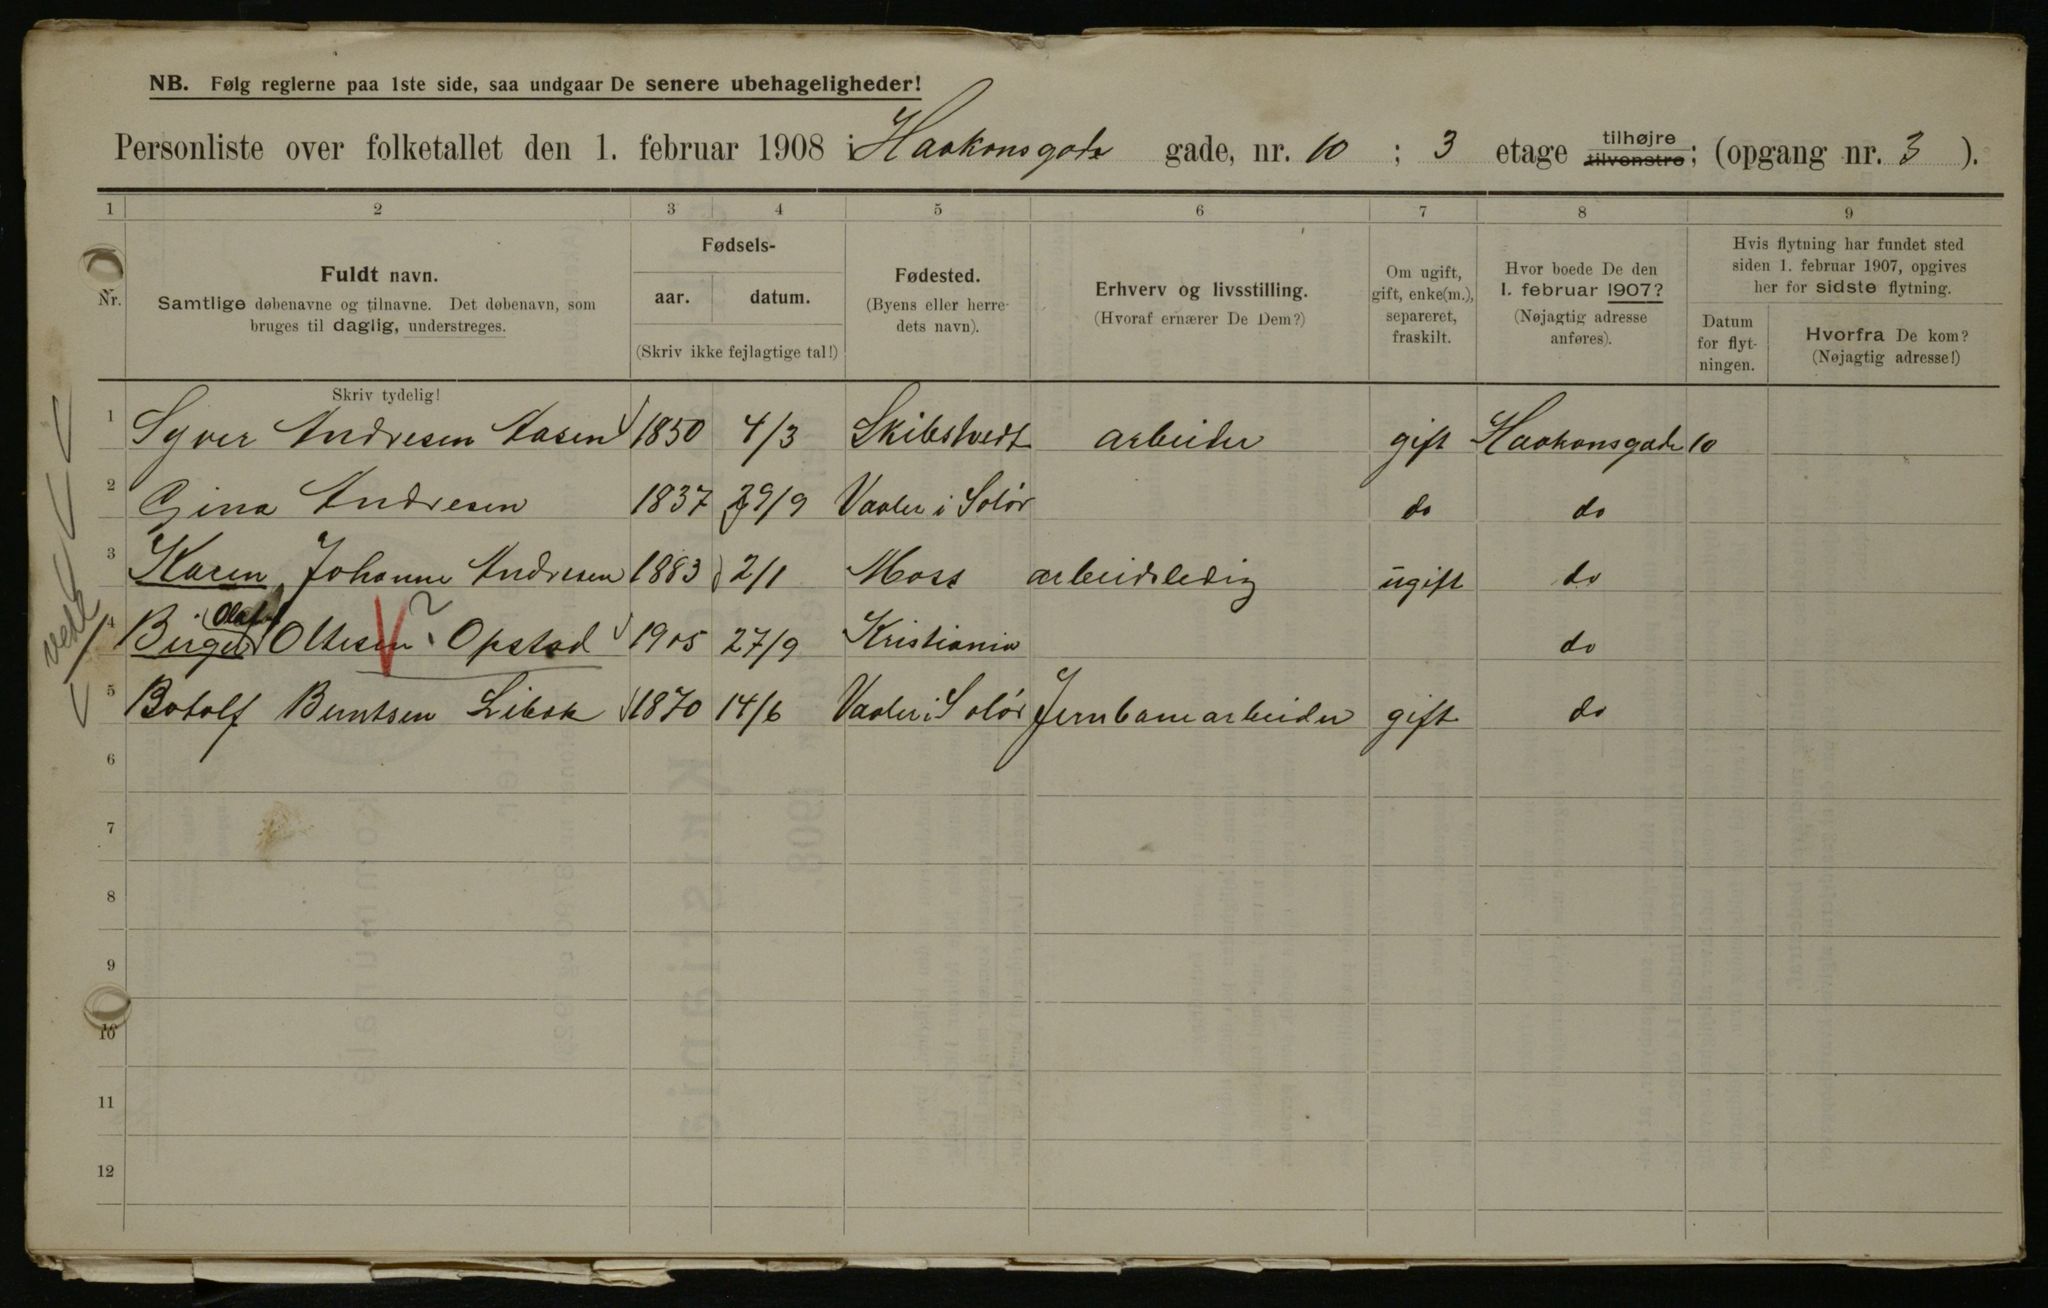 NB. Følg reglerne paa 1ste side, saa undgaar De senere ubehageligheder!
Personliste over folketallet den 1. februar 1908 i Haakonsgade gade, nr. 10 ; 3 etage tilhøjre tilvenstre; (opgang nr. 3 ).
1 2 3 4 5 6 7 8 9
Nr.
Fuldt navn.
Samtlige døbenavne og tilnavne. Det døbenavn, som
bruges til daglig, understreges.
Skriv tydelig!
Fødsels-
aar. datum.
(Skriv ikke fejlagtige tal!)
Fødested.
(Byens eller herre-
dets navn).
Erhverv og livsstilling.
(Hvoraf ernærer De Dem?)
Om ugift,
gift, enke(m.),
separeret,
fraskilt.
Hvor boede De den
1. februar 1907?
(Nøjagtig adresse
anføres).
Hvis flytning har fundet sted
siden 1. februar 1907, opgives
her for sidste flytning.
Datum
for flyt-
ningen.
Hvorfra De kom?
(Nøjagtig adresse!)
1 Syver Andresen Aasen 1850 4/3 Skibstvedt arbeider gift Haakonsgade 10
2 Gina Andresen 1837 29/9 Vaaler i Solør do do
3 Karen Johanne Andresen 1883 2/1 Moss arbeidsledig ugift do
Olaf
4 Birger Oltesen ? Opstad 1905 27/9 Kristiania do
5 Botolf Berntsen Libak 1870 14/6 Vaaler i Solør Jernbanearbeider gift do
6
7
8
9
10
11
12